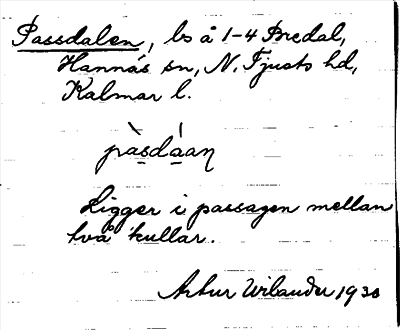 Passdalen, ls å 1-4 Bredal,
Hannäs sn, N. Tjusts hd,
Kalmar l.
pàsdáan
Ligger i passagen mellan
två kullar.
Artur Wilander 1930